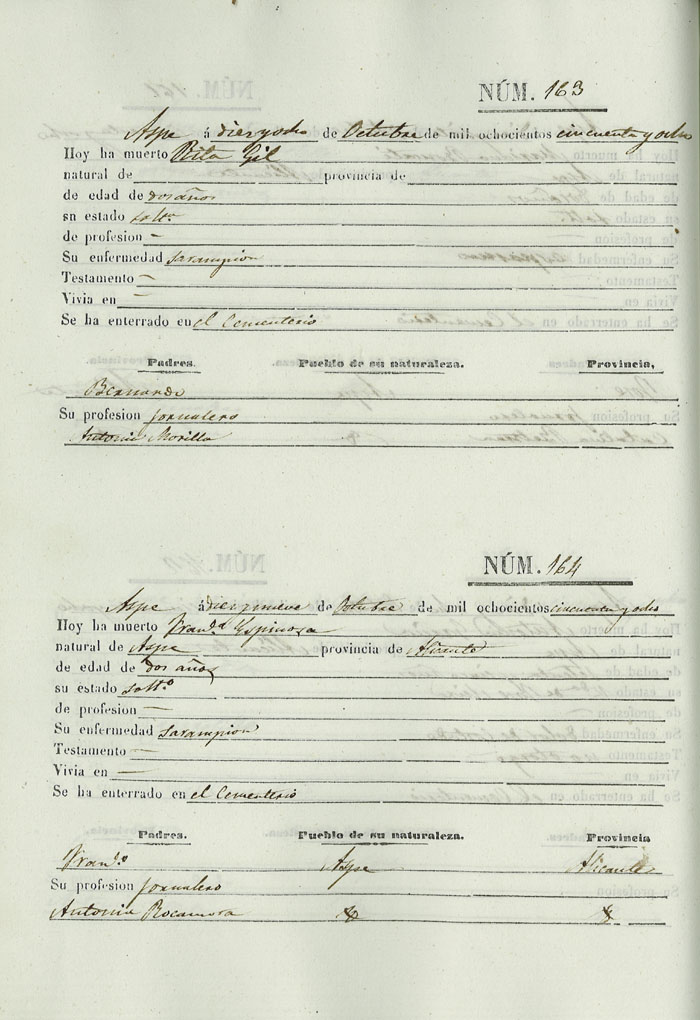 NÚM. 163
Aspe á diez y ocho de Octubre de mil ochocientos cincuenta y ocho
Hoy ha muerto Rita Gil
natural de provincia de
de edad de dos años
sn estado solt.ª
de profesion —
Su enfermedad sarampion
Testamento —
Vivia en —
Se ha enterrado en el Cementerio
Padres. Pueblo de su naturaleza. Provincia,
Bernardo
Su profesion jornalero
Antonia Morilla
NÚM. 164
Aspe á diez y nueve de Octubre de mil ochocientos cincuenta y ocho
Hoy ha muerto Fran.ca Espinosa
natural de Aspe provincia de Alicante
de edad de dos años
su estado solt.ª
de profesion —
Su enfermedad sarampion
Testamento —
Vivia en —
Se ha enterrado en el Cementerio
Padres. Pueblo de su naturaleza. Provincia
Fran.co Aspe Alicante
Su profesion jornalero
Antonia Rocamora